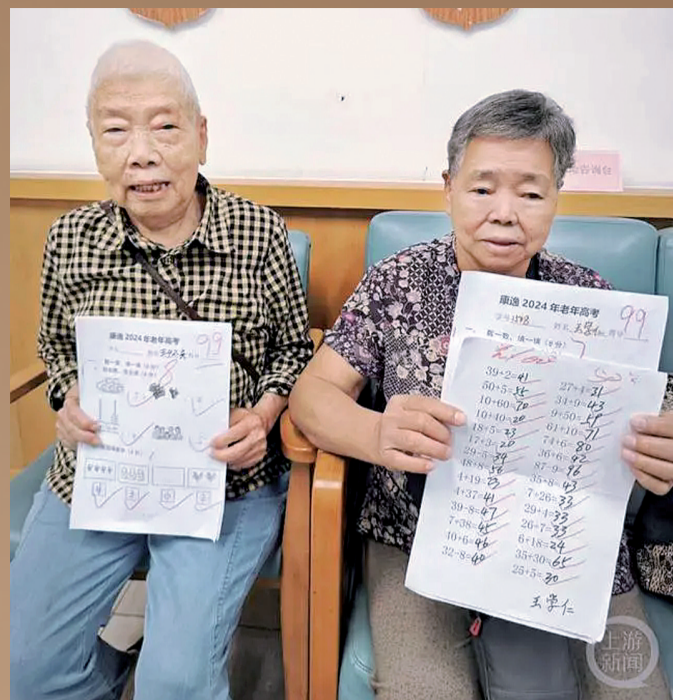 咨询台
康逸 2024 年老年高考
99
数一数,填一填(8分)
康逸 2024 年老年高考
学号 姓名 王学仁 得分 99
数一数,填一填(8分)
39+2=41
50+5=55
10+60=70
10+10=20
18+5=23
17+3=20
29+5=34
48+8=56
4+19=23
4+37=41
39+8=47
7+38=45
40+6=46
32+8=40
27+4=31
34+9=43
9+50=59
61+10=71
74+6=80
36+6=42
87+9=96
35+8=43
7+26=33
29+4=33
26+7=33
6+18=24
35+30=65
25+5=30
王学仁
上游
新闻